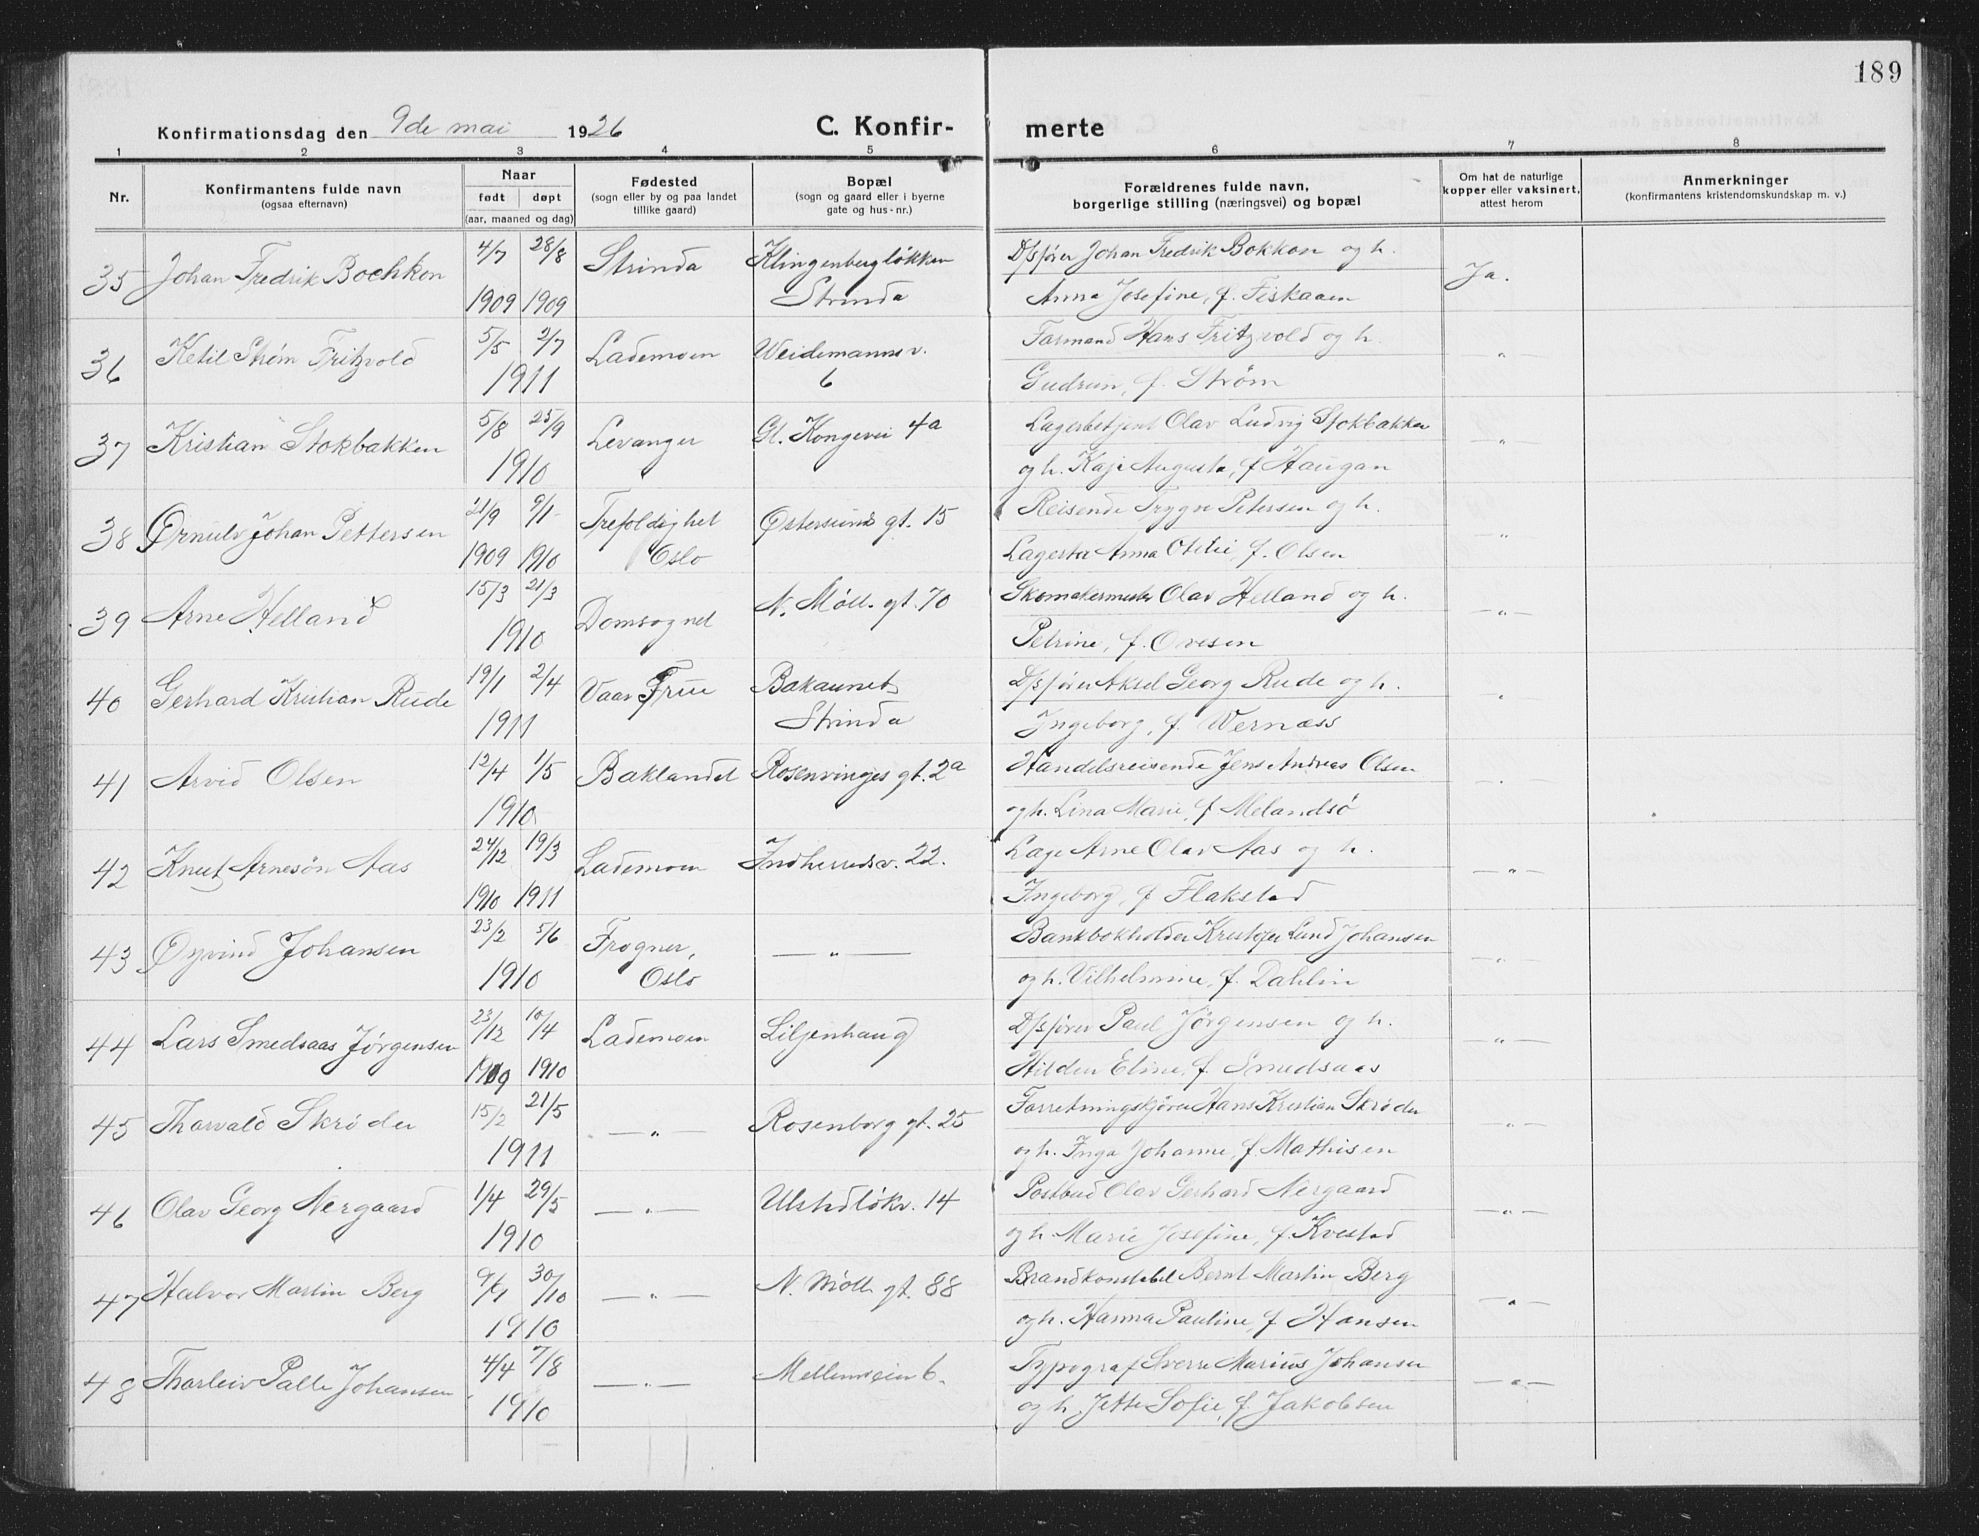 189
Konfirmationsdag den 9de mai 1926 C. Konfir- merte
1 2 3 4 5 6 7 8
Nr.
Konfirmantens fulde navn
(ogsaa efternavn)
Naar
født døpt
(aar, maaned og dag)
Fødested
(sogn eller by og paa landet
tillike gaard)
Bopæl
(sogn og gaard eller i byerne
gate og hus-nr.)
Forældrenes fulde navn,
borgerlige stilling (næringsvei) og bopæl
Om hat de naturlige
kopper eller vaksinert,
attest herom
Anmerkninger
(konfirmantens kristendomskundskap m. v.)
35 Johan Fredrik Bochkon 4/7 28/8 Strinda Klingenbergløkken D/sfører Johan Fredrik Bokkon og h. Ja.
1909 1909 Strinda Anna Josefine, f. Fiskaaen
36 Ketil Strøm Fritzvold 5/5 2/7 Lademoen Weidemannsv. Formand Hans Fritzvold og h. "
1911 6 Gudrun, f. Strøm
37 Kristian Stokbakken 5/8 25/9 Levanger Gl. Kongevei 4a Lagerbetjent Olav Ludvig Stokbakken "
1910 og h. Kaja Augusta, f Haugan
38 Ørnulv Johan Pettersen 21/9 9/1 Trefoldighet Østersunds gt. 15 Reisende Trygve Petersen og h. "
1909 1910 Oslo Anna f. Olsen
39 Arne Helland 15/3 21/3 Domsognet N. Møll. gt. 70 Skomakermester Olav Helland og h. "
1910 Petrine, f. Ovesen
40 Gerhard Kristian Rude 19/1 2/4 Vaar Frue Bakaunet D/sfører Aksel Georg Rude og h. "
1911 Strinda Ingeborg, f. Wernæss
41 Arvid Olsen 12/4 1/5 Baklandet Rosenvinges gt. 2a Handelsreisende Jens Andreas Olsen "
1910 og h. Lina Marie, f Melandsø
42 Knut Arnesøn Aas 24/12 19/3 Lademoen Indherredsv. 22. Læge Arne Olav Aas og h. "
1910 1911 Ingeborg, f Flakstad
43 Øyvind Johansen 23/2 5/6 Frogner, " Bankbokholder Kristofer Lund Johansen "
1910 Oslo og h. Vilhelmine, f. Dahlin
44 Lars Smedsaas Jørgensen 23/12 10/4 Lademoen Liljenhaug D/sfører Paul Jørgensen og h. "
1909 1910 Eline, f Smedsaas
45 Thorvald Skrøder 15/2 21/5 " Rosenborg gt. 25 Forretningskjører Hans Kristian Skrøder "
1911 og h. Inga Johanne, f Mathisen
46 Olav Georg Nergaard 1/4 29/5 " Ulstadløkv. 14 Postbud Olav Gerhard Nergaard "
1910 og h. Marie Josefine, f. Kvestad
47 Halvor Martin Berg 9/1 30/10 " N. Møll. gt. 88 Brandkonstabel Bernt Martin Berg "
1910 og h. Hanna Pauline, f Hansen
48 Thorleiv Palle Johansen 4/4 7/8 " Mellemveien 6. Typograf Sverre Marius Johansen "
1910 og h. Jette Sofie, f. Jakobsen